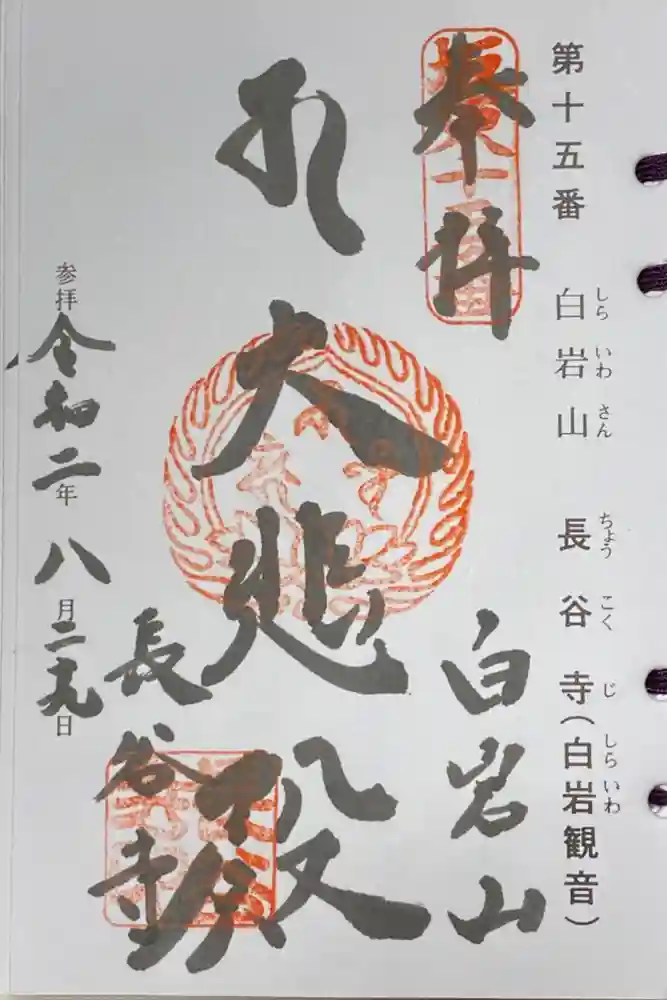 第十五番 白岩山 長谷寺(白岩観音)
しら いわ さん ちょう こく じ しら いわ
奉拝
坂東十五番
白岩山
大悲殿
長谷寺
参拝 令和二年 八月二九日